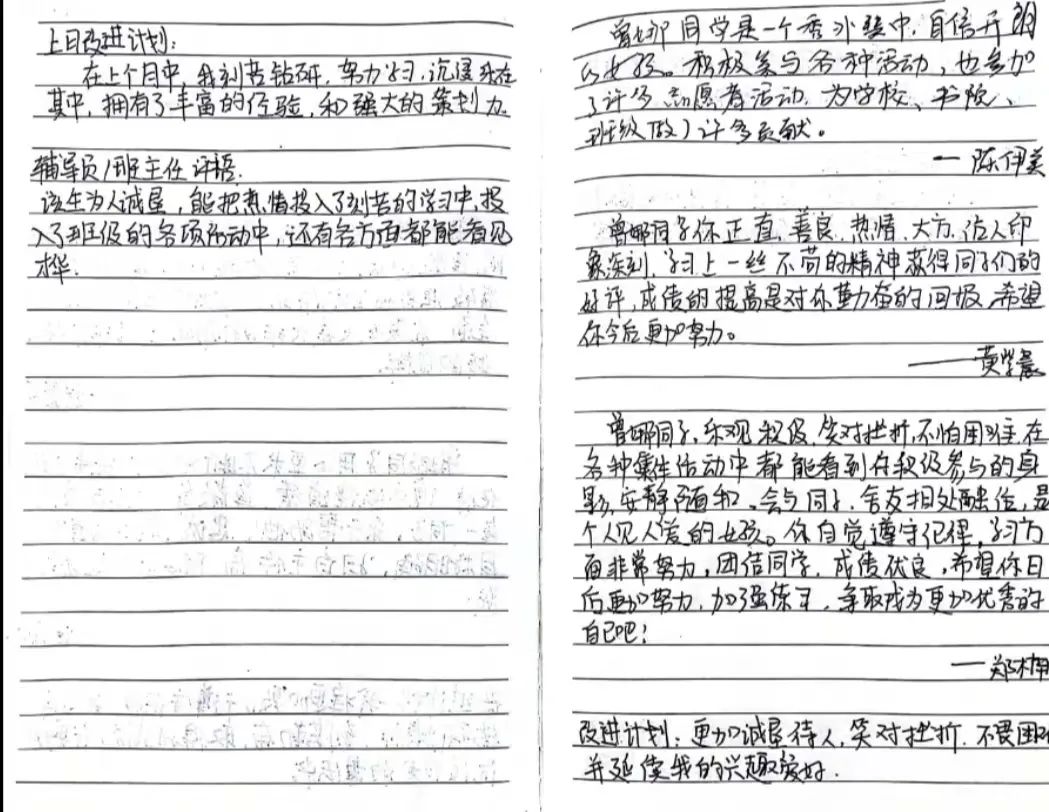 上月改进计划：
在上个月中，我刻苦钻研，努力学习，沉浸在
其中，拥有了丰富的经验，和强大的策划力.
辅导员/班主任评语.
该生为人诚恳，能把热情投入了刻苦的学习中，投
入了班级的各项活动中，还有各方面都能看见
才华.
曾娜同学是一个秀外慧中，自信开朗
的女孩。积极参与各种活动，也参加
了许多志愿者活动，为学校、书院、
班级做了许多贡献。
一 陈伊美
曾娜同学你正直，善良，热情，大方，给人印
象深刻，学习上一丝不苟的精神获得同学们的
好评，成绩的提高是对你勤奋的回报，希望
你今后更加努力。
——黄学晨
曾娜同学，乐观积极，笑对挫折，不怕困难，在
各种集体活动中都能看到你积极参与的身
影，安静随和，会与同学、舍友相处融洽，是
个人见人爱的女孩。你自觉遵守纪律，学习方
面非常努力，团结同学，成绩优良，希望你日
后更加努力，加强练习，争取成为更加优秀的
自己吧！
—郑
改进计划：更加诚恳待人，笑对挫折，不畏困
并延续我的兴趣爱好.